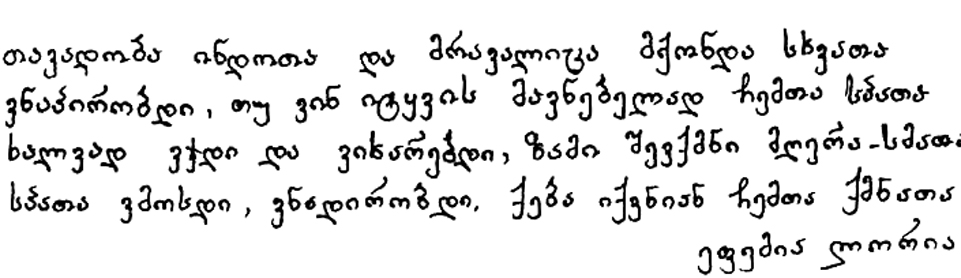 თავადობა ინდოთა და მრავალიცა მქონდა სხვათა
ვნაპირობდი, თუ ვინ იტყვის მავნებელად ჩემთა სპათა
ხალვად ვჭდი და ვიხარებდი, ზამი შევქმნი მღერა-სმათა
სპათა ვმოსდი, ვნადირობდი. ქება იქვნიან ჩემთა ქმნათა
ეფემია ლორია